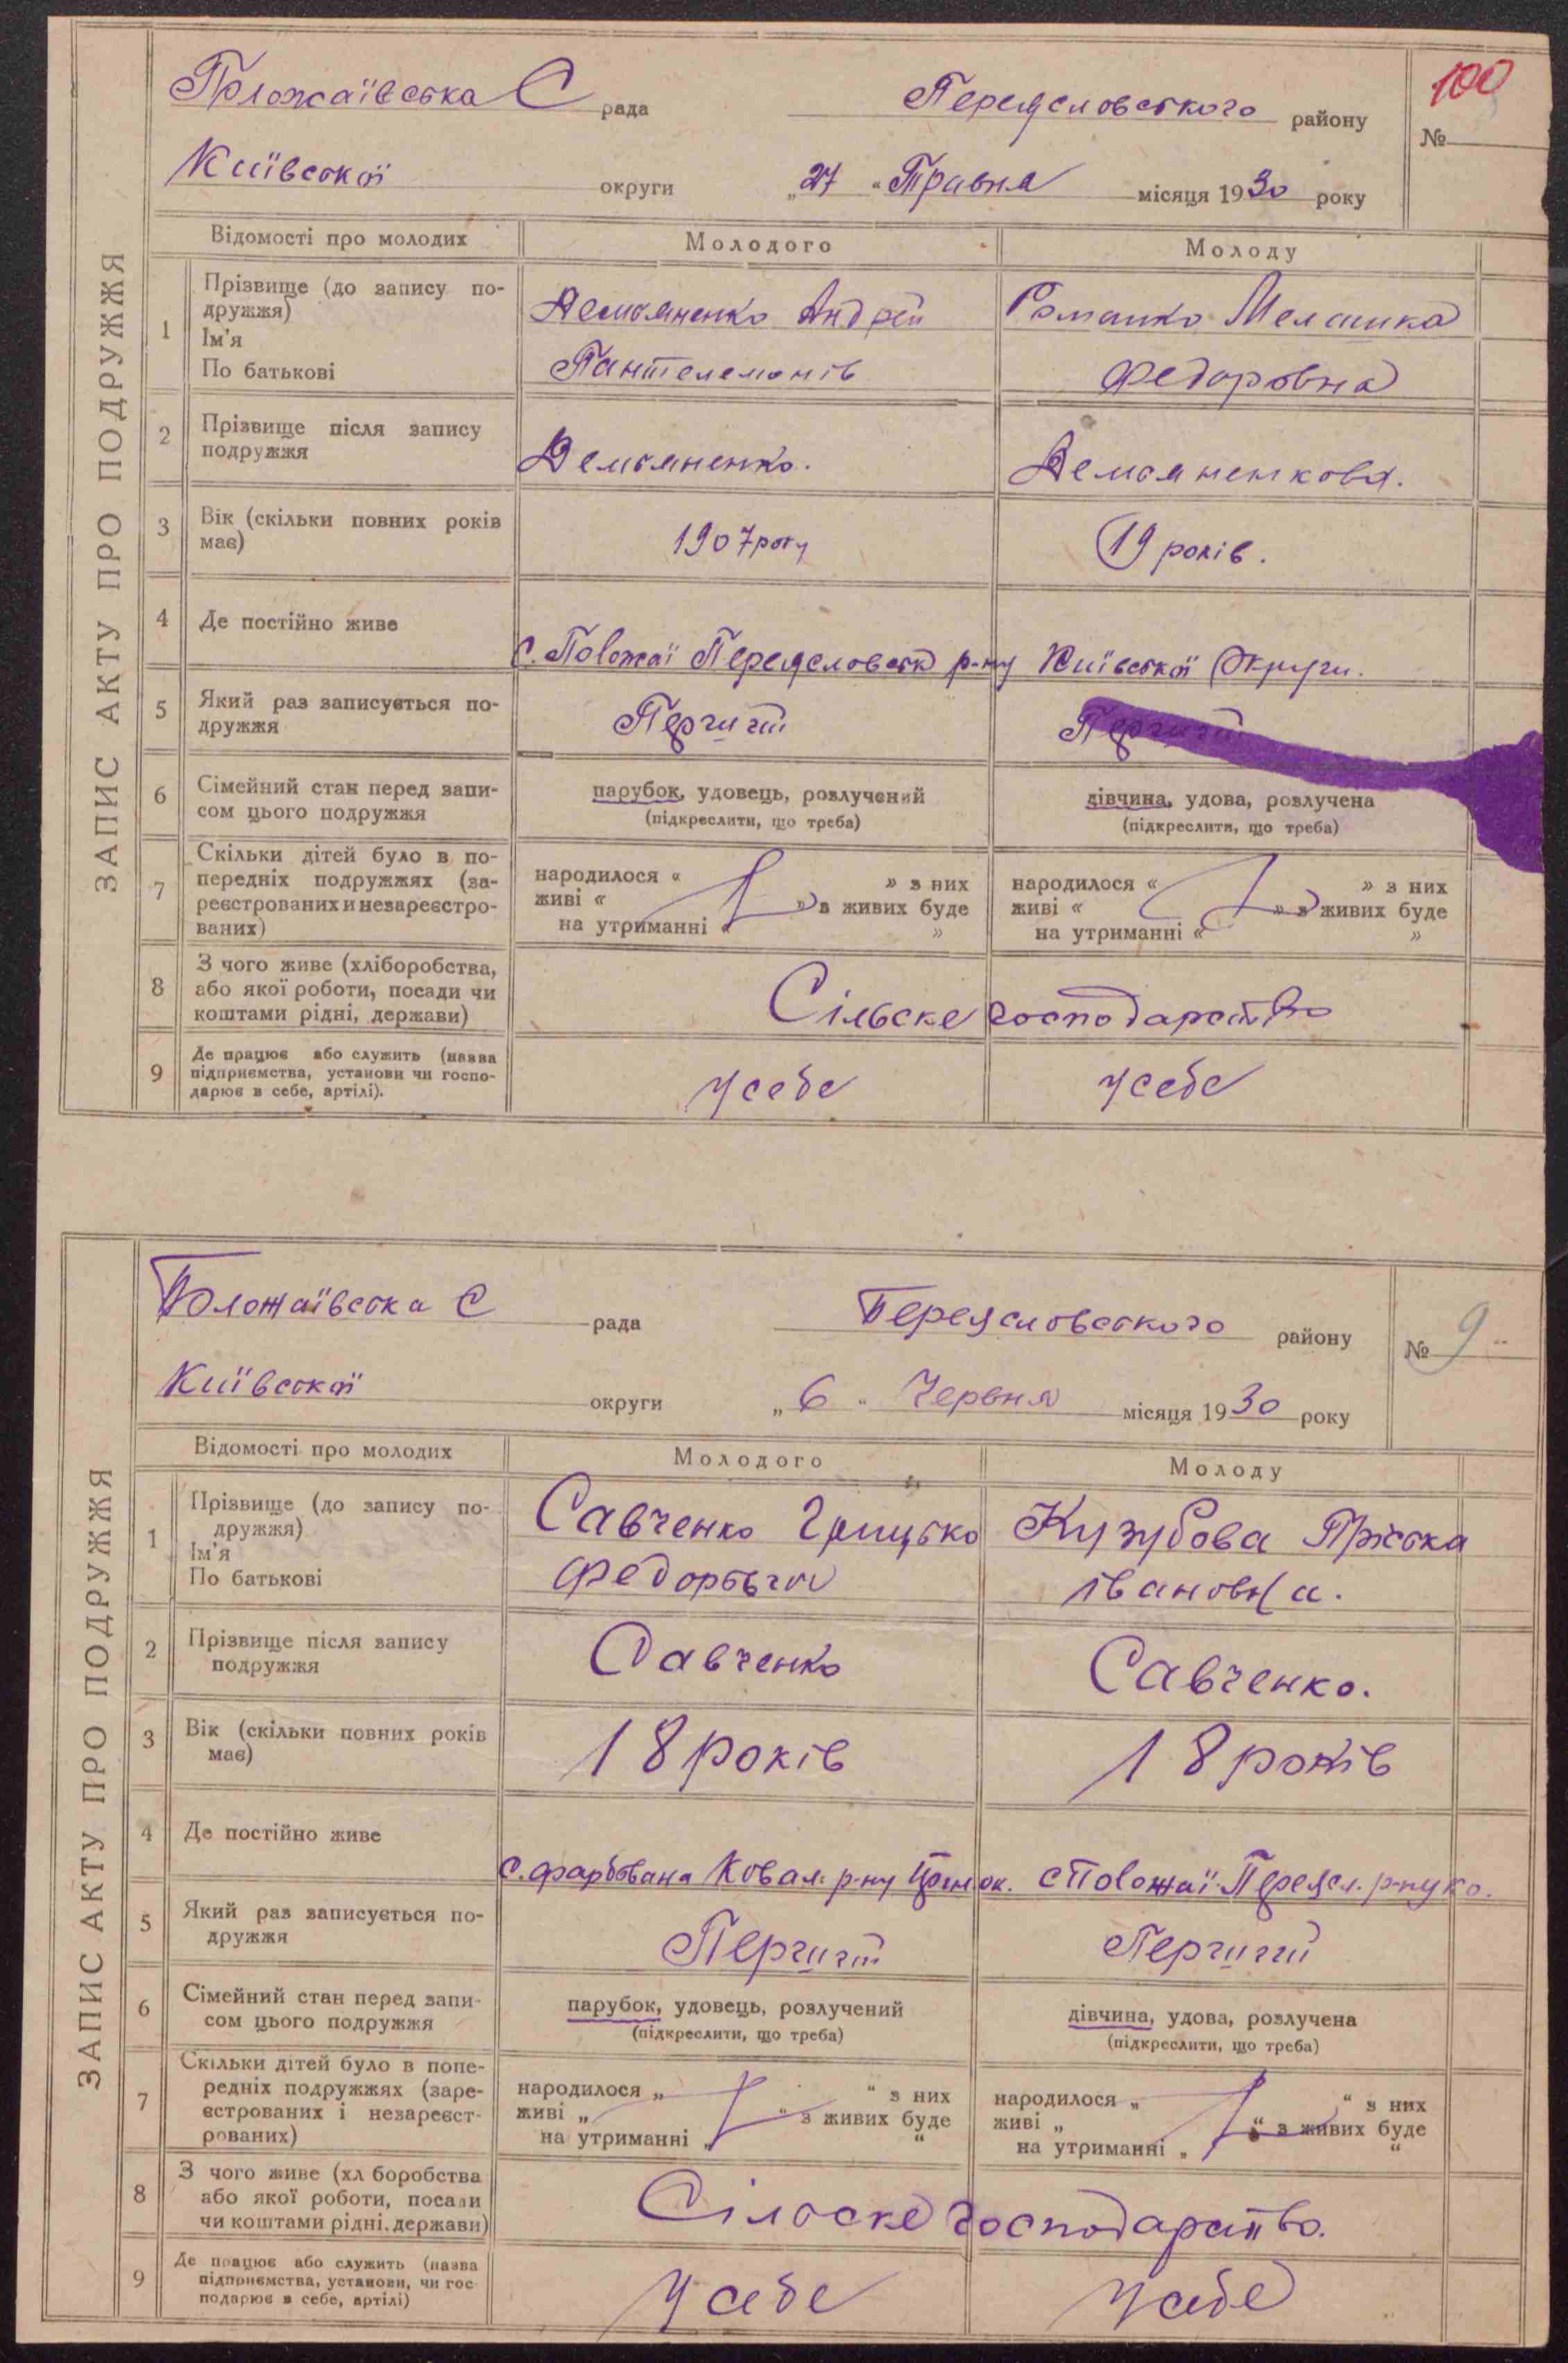 ЗАПИС АКТУ ПРО ПОДРУЖЖЯ
Положаївська С рада Переяславського району
100
№
Київської округи „27“ Травня місяця 1930 року
Відомості про молодих Молодого Молоду
1 Прізвище (до запису подружжя)
Ім'я
По батькові
Демьяненко Андрей
Пантелемонів
Романко Мелашка
Федоровна
2 Прізвище після запису
подружжя
Демьяненко.
Демьяненкова.
3 Вік (скільки повних років
має)
1907 року
19 років.
4 Де постійно живе
с. Положаї Переяславськ р-ну Київської Округи.
5 Який раз записується по-
дружжя
Перший
Перший
6 Сімейний стан перед запи-
сом цього подружжя
парубок, удовець, розлучений
(підкреслити, що треба)
дівчина, удова, розлучена
(підкреслити, що треба)
7 Скільки дітей було в по-
передніх подружжях (за-
реєстрованих и незареєстро-
ваних)
народилося « » з них
живі « » з живих буде
на утриманні « »
народилося « » з них
живі « » з живих буде
на утриманні « »
8 З чого живе (хліборобства,
або якої роботи, посади чи
коштами рідні, держави)
Сільске господарство
9 Де працює або служить (назва
підприємства, установи чи госпо-
дарює в себе, артілі).
у себе
у себе
ЗАПИС АКТУ ПРО ПОДРУЖЖЯ
Положаївська С рада Переяславського району
№ 9
Київської округи „6“ Червня місяця 1930 року
Відомості про молодих Молодого Молоду
1 Прізвище (до запису по-
дружжя)
Ім'я
По батькові
Савченко Грицько
Федорович
Кузубова Пріська
Івановна.
2 Прізвище після запису
подружжя
Савченко
Савченко.
3 Вік (скільки повних років
має)
18 років
18 років
4 Де постійно живе
с. Фарбована Ковал. р-ну ок. с Положаї Переясл. р-ну
5 Який раз записується по-
дружжя
Перший
Перший
6 Сімейний стан перед запи-
сом цього подружжя
парубок, удовець, розлучений
(підкреслити, що треба)
дівчина, удова, розлучена
(підкреслити, що треба)
7 Скільки дітей було в попе-
редніх подружжях (заре-
єстрованих і незареєст-
рованих)
народилося „ “ з них
живі „ “ з живих буде
на утриманні „ “
народилося „ “ з них
живі „ “ з живих буде
на утриманні „ “
8 З чого живе (хл боробства
або якої роботи, посади
чи коштами рідні, держави)
Сільске господарство.
9 Де працює або служить (назва
підприємства, установи, чи гос-
подарює в себе, артілі)
у себе
у себе